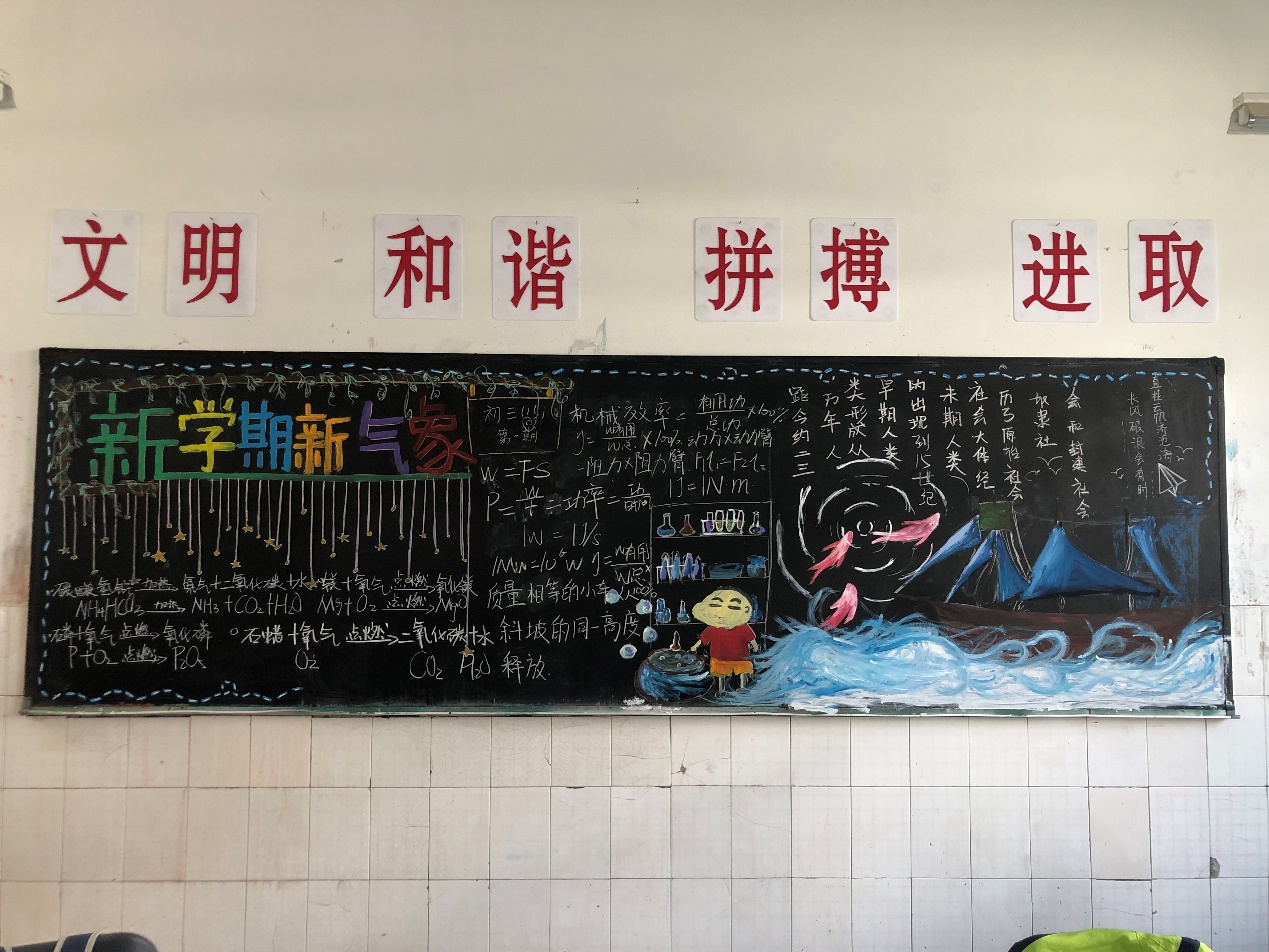 文明 和谐 拼搏 进取
新学期新气象
初三
第一期
碳酸氢铵 加热 氨气+二氧化碳+水
NH4HCO3 加热 NH3+CO2+H2O
镁+氧气 点燃 氧化镁
Mg+O2 点燃 MgO
磷+氧气 点燃 氧化磷
P+O2 点燃 P2O5
石蜡+氧气 点燃 二氧化碳+水
O2 CO2 H2O
W=FS
P=W/t=功率=功/时间
1W=1J/s
1Mw=10⁶W η=W有用/W总×100%
质量相等的小车
斜坡的同一高度
释放.
机械效率=有用功/总功×100%
η=W有用/W总×100% 动力×动力臂
=阻力×阻力臂 F1l1=F2l2
1J=1N m
距今约二三
万年人
类形成从
早期人类
的出现到15世纪
末期人类
社会大体经
历了原始社会
奴隶社
会和封建社会
长风破浪会有时
直挂云帆济沧海